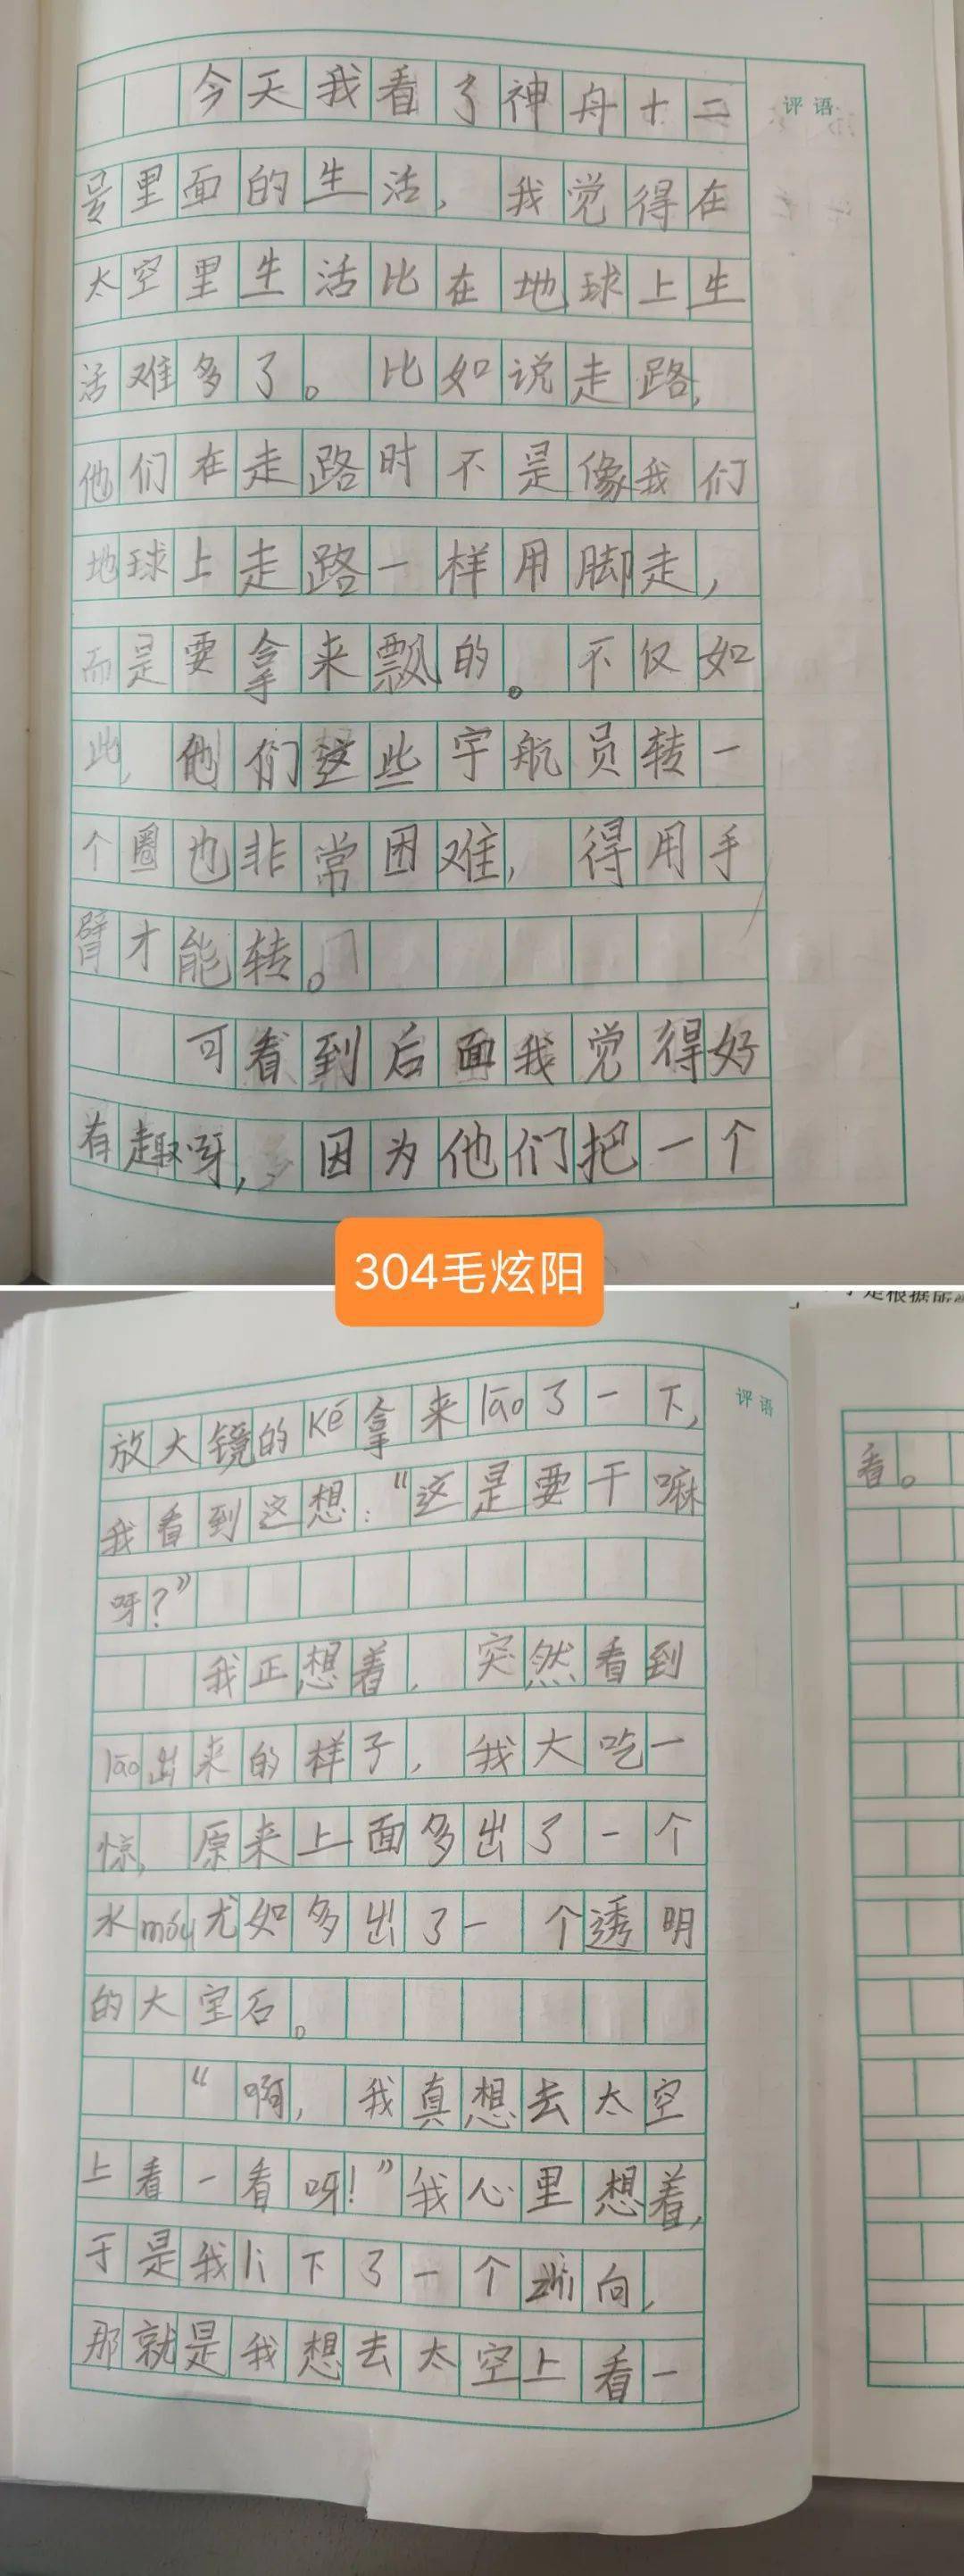 今天我看了神舟十二
号里面的生活，我觉得在
太空里生活比在地球上生
活难多了。比如说走路，
他们在走路时不是像我们
地球上走路一样用脚走，
而是要拿来飘的。不仅如
此，他们这些宇航员转一
个圈也非常困难，得用手
臂才能转。
可看到后面我觉得好
有趣呀，因为他们把一个
评语
304毛炫阳
放大镜的Ké拿来lāo了一下，
我看到这想：“这是要干嘛
呀？”
我正想着，突然看到
lāo出来的样子，我大吃一
惊，原来上面多出了一个
水móu尤如多出了一个透明
的大宝石。
“啊，我真想去太空
上看一看呀！”我心里想着，
于是我lì下了一个zhì向，
那就是我想去太空上看一
评语
看。